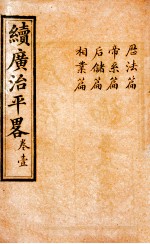 續廣治平畧 卷壹
厯法篇
帝系篇
后儲篇
相業篇